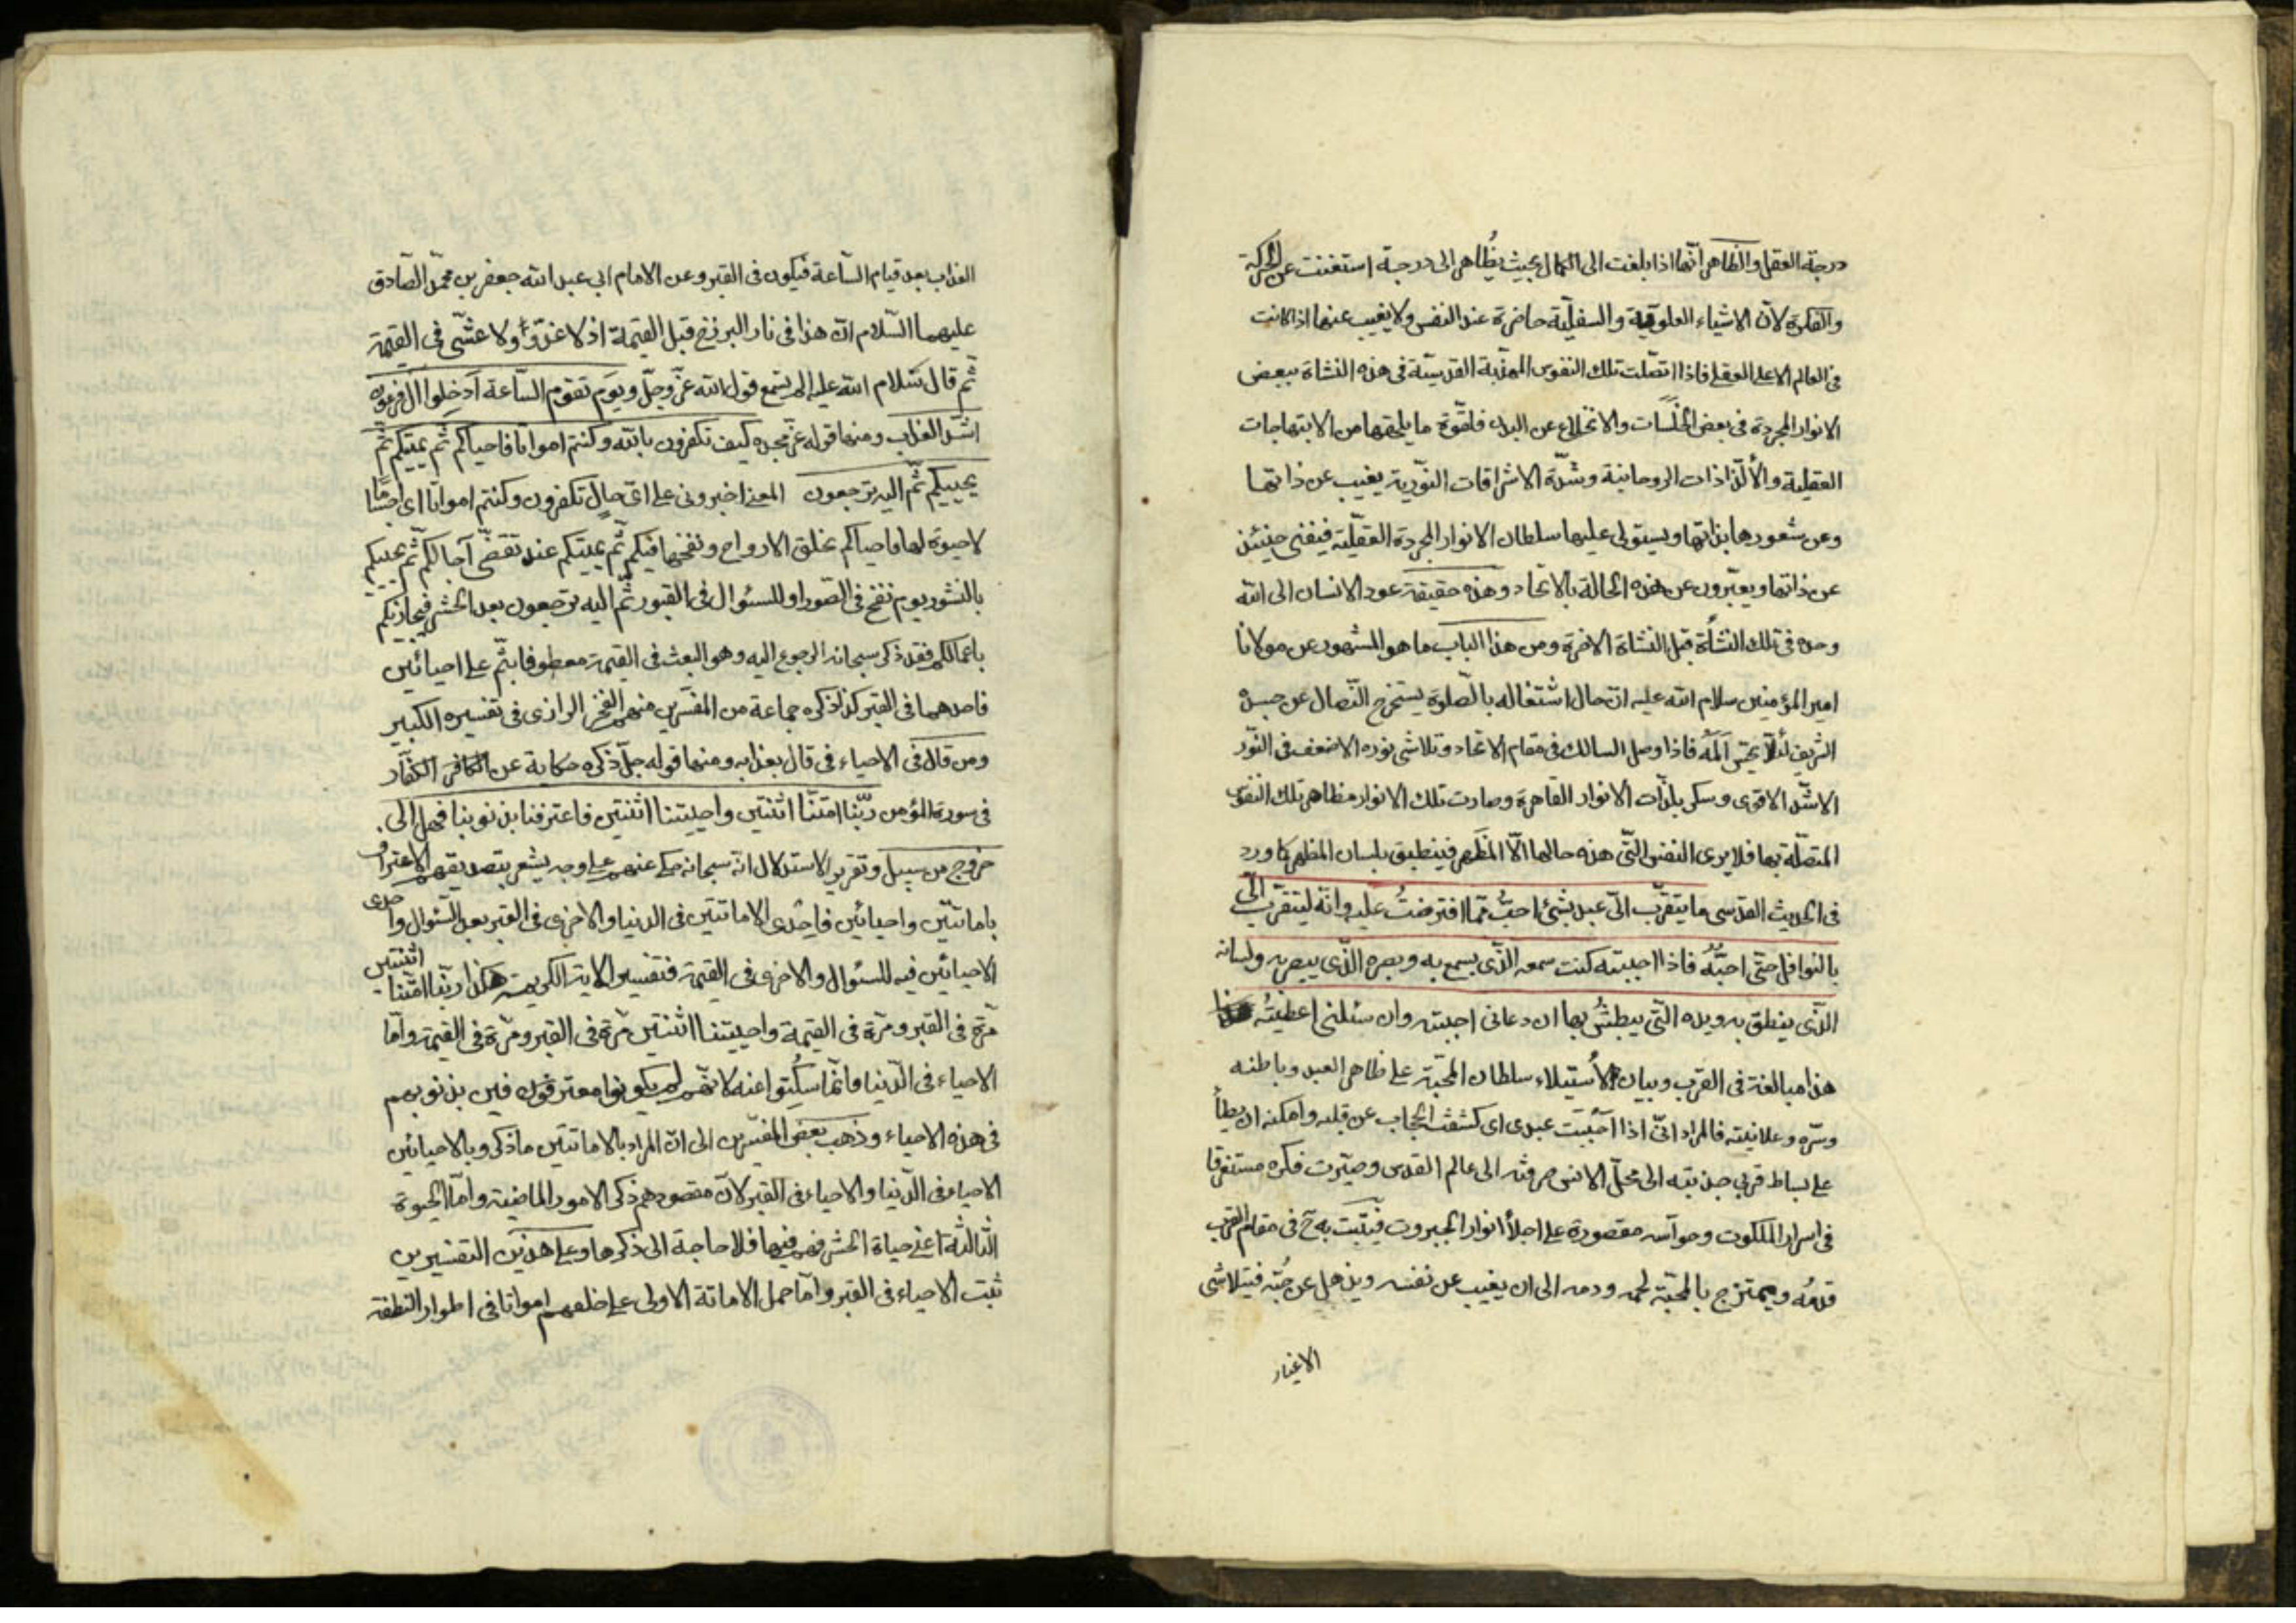 درجة العقل والظاهر انّها اذا بلغت الى الكمال بحيث يظاهر الى درجة استغنت عن الحركة
والفكرة لانّ الاشياء العلوية والسفليّة حاضرة عند النفس ولا يغيب عنها اذا كانت
فى العالم الاعلى العقلى فاذا اتّصلت تلك النفوس المهذّبة القدسيّة فى هذه النشاة ببعض
الانوار المجردة فى بعض الخلسات والانخلاع عن البدن فلقوّة ما يلحقها من الابتهاجات
العقلية والألتذاذات الروحانية وشدّة الاشراقات النّورية يغيب عن ذاتها
وعن شعورها بذاتها ويستولى عليها سلطان الانوار المجردة العقليّة فيفنى حينئذ
عن ذاتها ويعبّرون عن هذه الحالة بالاتحاد وهذه حقيقة عود الانسان الى الله
وحده فى تلك النشأة قبل النشاة الاخرة ومن هذا الباب ما هو المشهور عن مولانا
امير المؤمنين سلام الله عليه انّ حال اشتغاله بالصّلوة يستخرج النّصال عن جسده
الشريف لئلّا يحسّ المَهُ فاذا وصل السالك فى مقام الاتحاد وتلاشى نوره الاضعف فى النّور
الاشدّ الاقوى وسكر بلذّات الانوار القاهرة وصارت تلك الانوار مظاهر تلك النفوس
المتصلّة بها فلا يرى النفس الّتى هذه حالها الّا المَظهر فينطبق بلسان المظهر كما ورد
فى الحديث القدسى ما يتقرّب الىّ عبد بشئ احبُّ ممّا افترضتُ عليه وانّه ليتقرّب الىّ
بالنوافل حتّى احبُّهُ فاذا احببته كنت سمعه الّذى يسمع به وبصره الّذى يبصر به ولسانه
الذّى ينطق به ويده الّتى يبطشُ بها ان دعانى اجبته وان سئلنى اعطيتُه
هذا مبالغة فى القرب وبيان لأستيلاء سلطان المحبّة على ظاهر العبد وباطنه
وسّره وعلانيته فالمراد انّى اذا احببت عبدى اى كشفت الحجاب عن قلبه وامكنه ان يطأ
على بساط قربى جذبته الى محلّ الانس صرفته الى عالم القدس وصيّرت فكره مستغرقا
فى اسرار الملكوت وحواسّه مقصورة على اجلأ انوار الجبروت فيثبت به ح فى مقام القرب
قدمُه ويمتزج بالمحبّة لحمه ودمه الى ان يغيب عن نفسه ويذهل عن حُبّه فيتلاشى
الاغيار
العذاب بعد قيام السّاعة فيكون فى القبر وعن الامام ابى عبد الله جعفر بن محمّد الصّادق
عليهما السّلام انّ هذا فى نار البرزخ قبل القيمة اذ لا غدوّ ولا عشّى فى القيمة
ثّم قال سلام الله عليه الم تسمع قول الله عزّ وجلّ ويوم تقوم السّاعة أدخلوا ال فرعون
اشّد العذاب ومنها قوله عزّ مجده كيف تكفرون بالله وكنتم امواتا فاحياكم ثّم يميتكم ثّم
يحييكم ثّم اليه ترجعون المعنى اخبرونى على اىّ حالٍ تكفرون وكنتم امواتا اى اجسًاما
لا حيوة لها فاحياكم بخلق الارواح ونفخها فيكم ثّم يميتكم عند تقضّى آجالكم ثّم يحييكم
بالنشور يوم نفخ فى الصّور او للسئوال فى القبور ثّم اليه ترجعون بعد الحشر فيجازيكم
باعمالكم فقد ذكر سبحانه الرجوع اليه وهو البعث فى القيمة معطوفا بثّم على احيائين
فاحدهما فى القبر كذا ذكره جماعة من المفسّرين منهم الفخر الرازى فى تفسيره الكبير
ومن قال فى الاحياء فى قال بعذابه ومنها قوله جلّ ذكره حكاية عن الكفّار
فى سورة المؤمن ربّنا امتّنا اثنتين واحييتنا اثنتين فاعترفنا بذنوبنا فهل الى
خروج من سبيل وتقرير الاستدلال انّه سبحانه حكى عنهم على وجه يشعر بتصديقهم الاعتراف
باماتتين واحيائين فاحدى الاماتتين فى الدنيا والاخرى فى القبر بعد السّئوال واحدى
الاحيائين فيه للسئوال والاخرى فى القيمة فتفسير الاية الكريمة هكذا ربّنا امتّنا اثنتين
مّرة فى القبر ومّرة فى القيمة واحييتنا اثنتين مّرة فى القبر ومّرة فى القيمة وامّا
الاحياء فى الّدنيا فانّما سكتوا عنه لانّهم لم يكونوا معترفين بذنوبهم
فى هذه الاحياء وذهب بعض المفسّرين الى انّ المراد بالاماتتين ما ذكر وبالاحيائين
الاحياء فى الّدنيا والاحياء فى القبر لانّ مقصودهم ذكر الامور الماضية وامّا الحيوة
الثالثة اعنى حياة الحشر فهم فيها فلا حاجة الى ذكرها وعلى هذين التفسيرين
ثبت الاحياء فى القبر وامّا حمل الاماتة الاولى على خلقهم امواتا فى اطوار النطفة